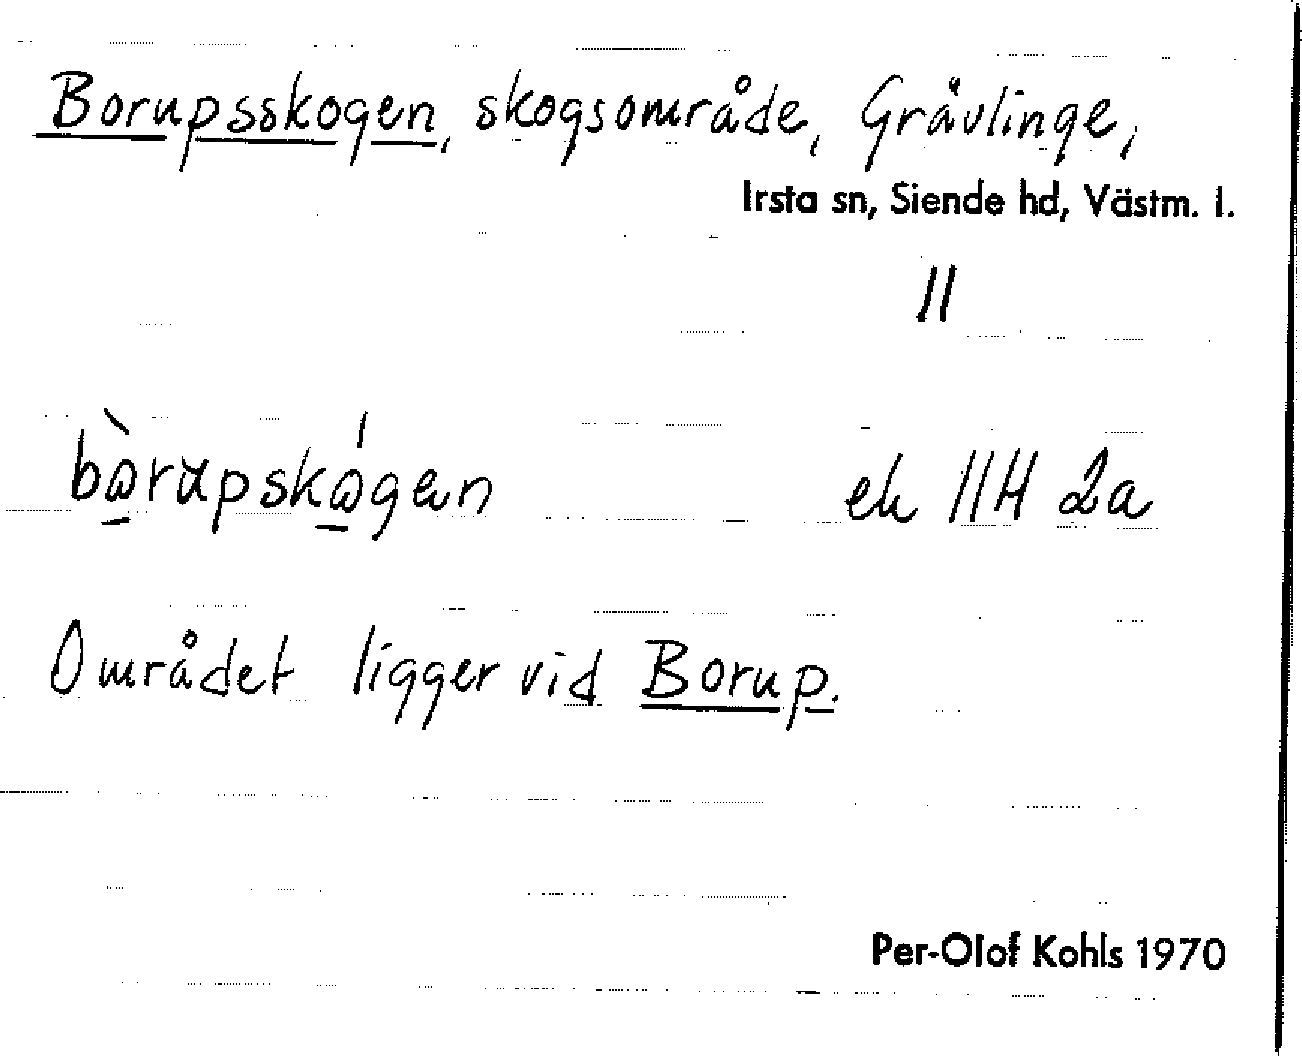 Borupsskogen, skogsområde, Gråvlinge,
Irsta sn, Siende hd, Västm. l.
11
bòrupskógen ek 11H 2a
Området ligger vid Borup.
Per-Olof Kohls 1970